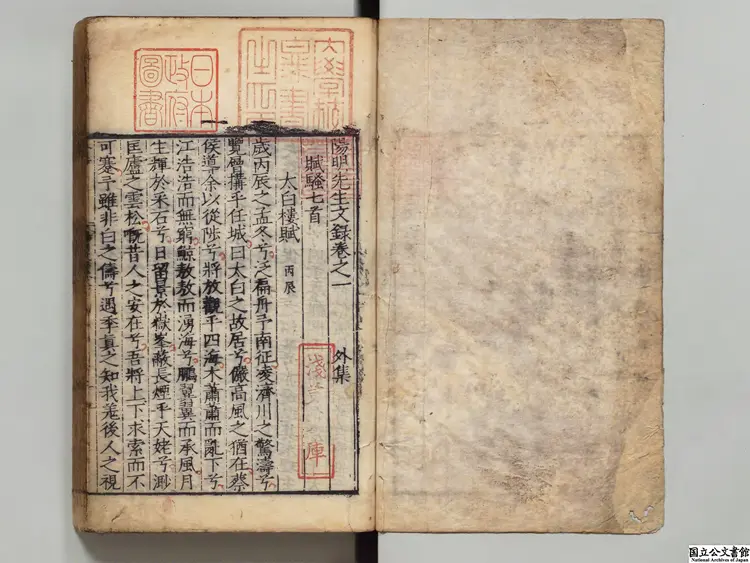 日本政府圖書
淺草文庫
陽明先生文錄卷之一 外集
賦騷七首
太白樓賦 丙辰
歲丙辰之孟冬兮泛扁舟予南征凌濟川之驚濤兮
覽層搆乎任城曰太白之故居兮儼高風之猶在蔡
侯導余以從陟兮將放觀乎四海木蕭蕭而亂下兮
江浩浩而無窮鯨敖敖而湧海兮鵬翼翼而承風月
生輝於采石兮日留景於嶽峯蔽長煙乎天姥兮渺
匡廬之雲松嘅昔人之安在兮吾將上下求索而不
可蹇予雖非白之儔兮遇季真之知我羗後人之視
国立公文書館
National Archives of Japan